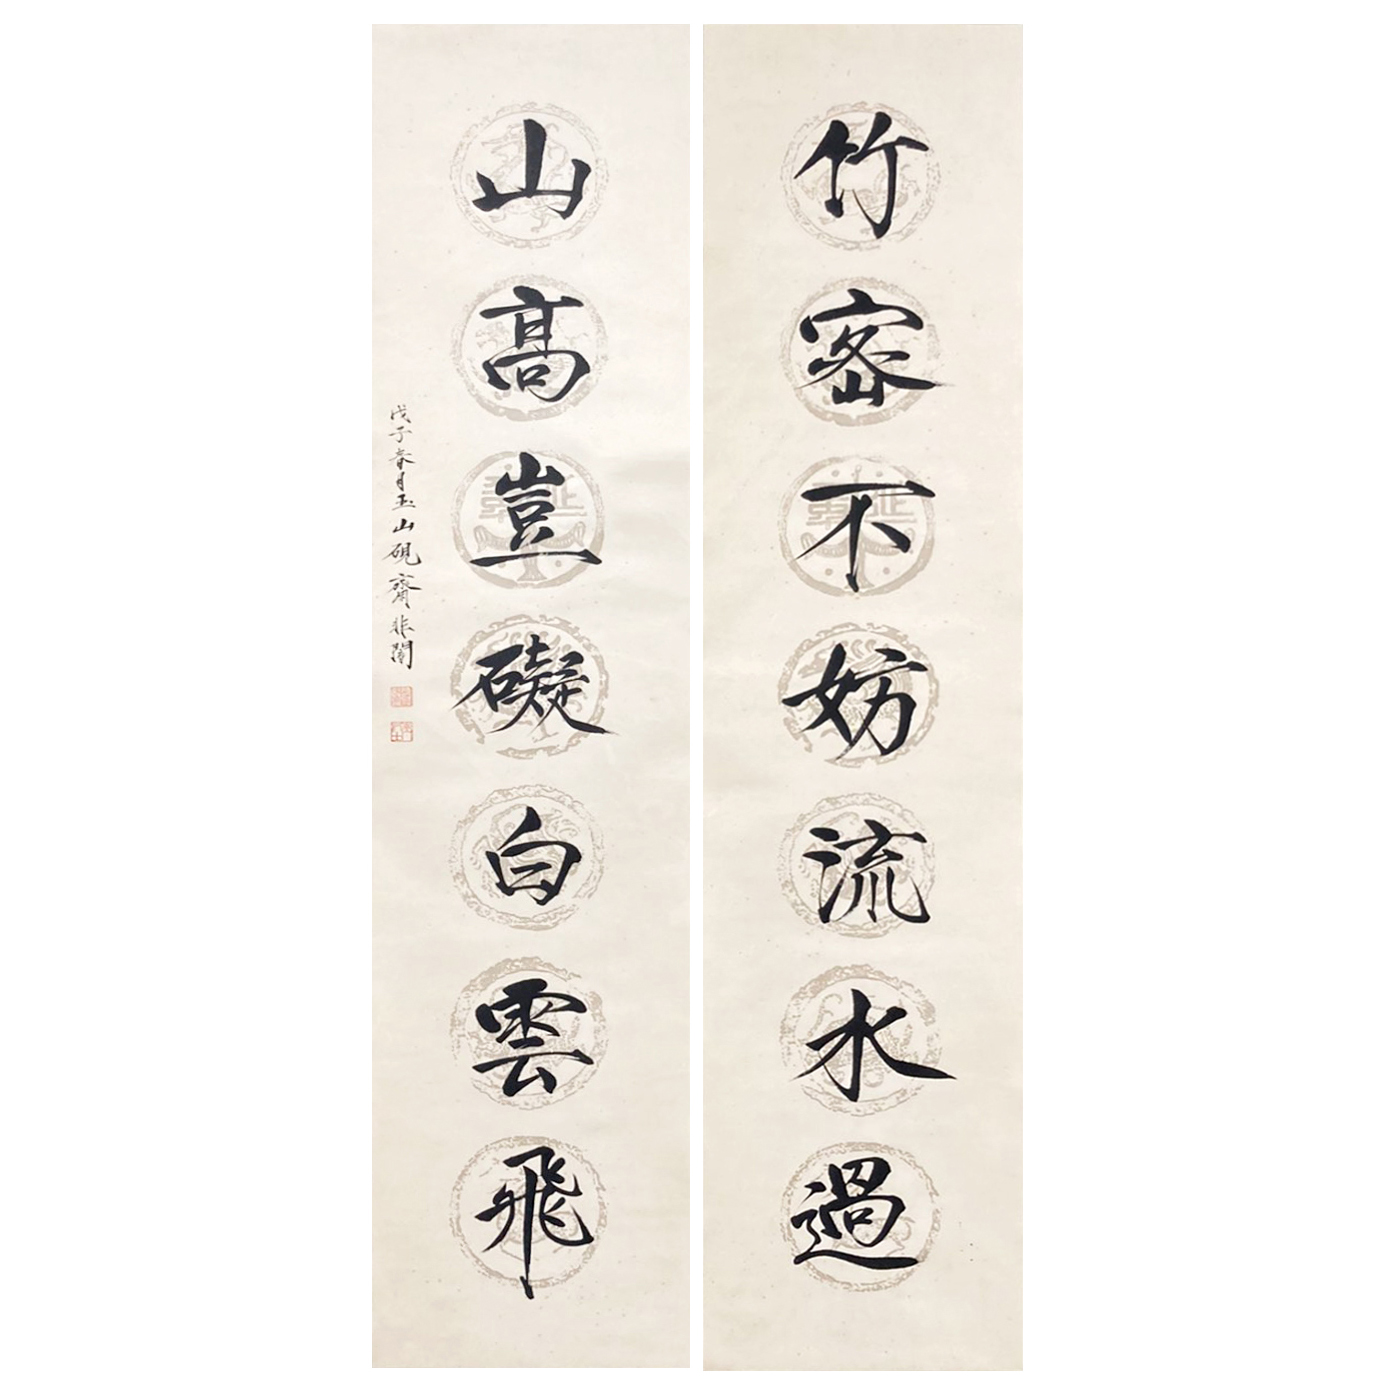 竹密不妨流水過
山高豈礙白雲飛
戊子春月玉山硯齋非闇